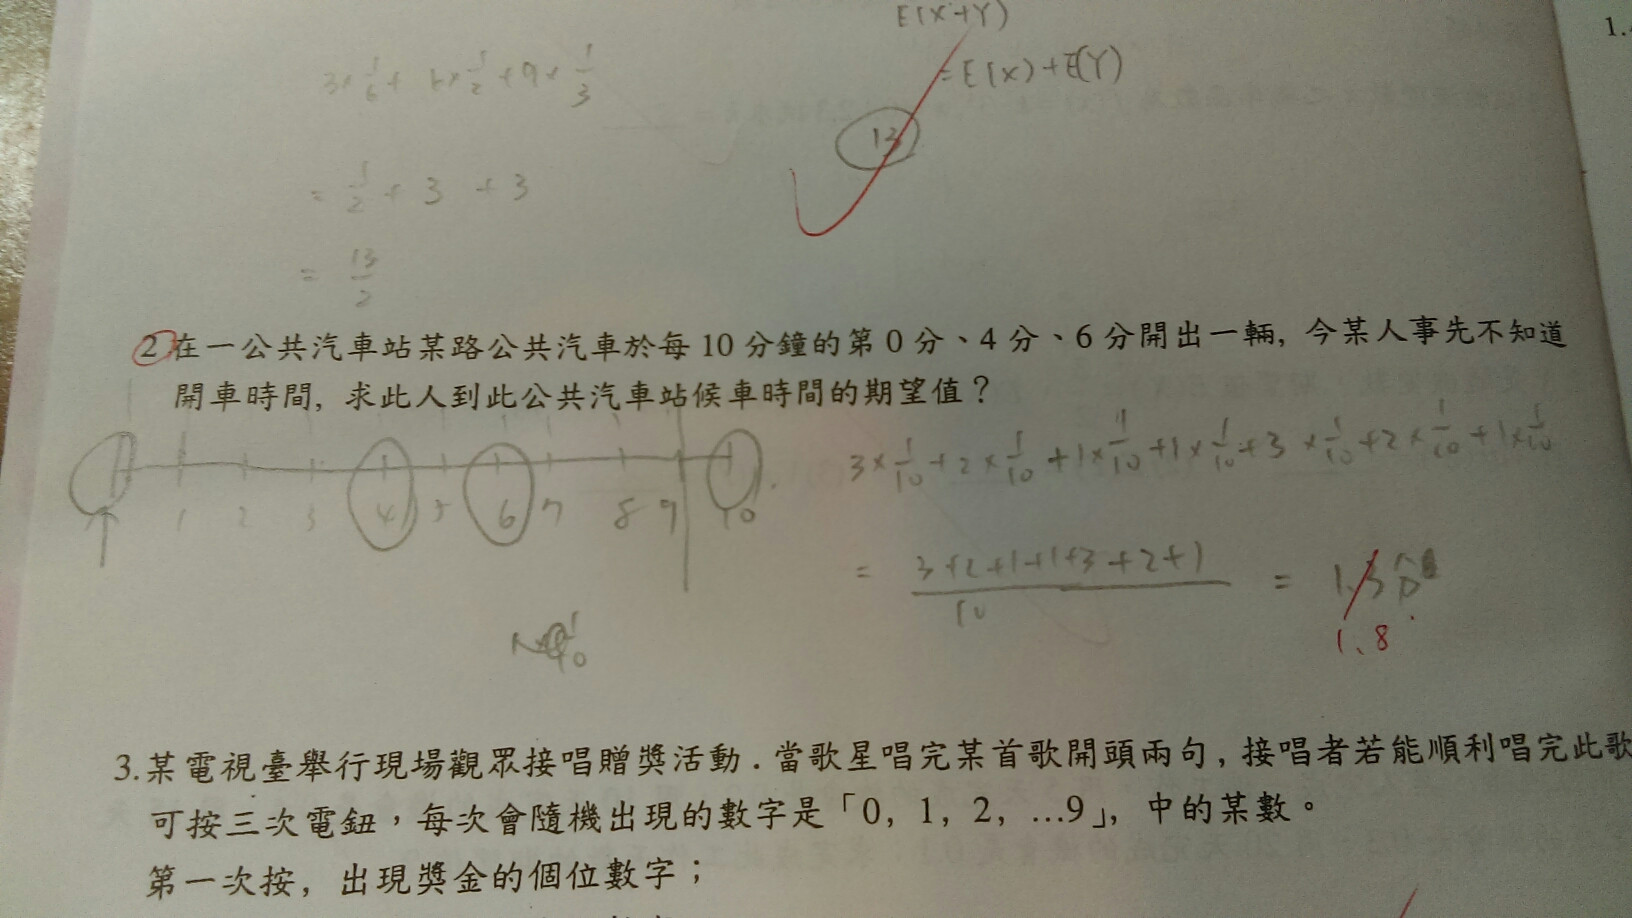 E(X+Y)
= E(X)+E(Y)
13
3×1/6+ 6×1/2+9×1/3
= 1/2 + 3 + 3
= 13/2
2 在一公共汽車站某路公共汽車於每 10 分鐘的第 0 分、4 分、6 分開出一輛, 今某人事先不知道
開車時間, 求此人到此公共汽車站候車時間的期望值？
1 2 3 4 5 6 7 8 9 10
3×1/10+2×1/10+1×1/10+1×1/10+3×1/10+2×1/10+1×1/10
= 3+2+1+1+3+2+1/10 = 1.3分
1.8
3.某電視臺舉行現場觀眾接唱贈獎活動．當歌星唱完某首歌開頭兩句, 接唱者若能順利唱完此歌
可按三次電鈕，每次會隨機出現的數字是「0, 1, 2, …9」, 中的某數。
第一次按, 出現獎金的個位數字；